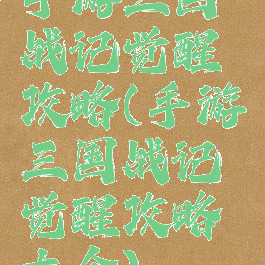 手游三国
战记觉醒
攻略(手游
三国战记
觉醒攻略
大全)